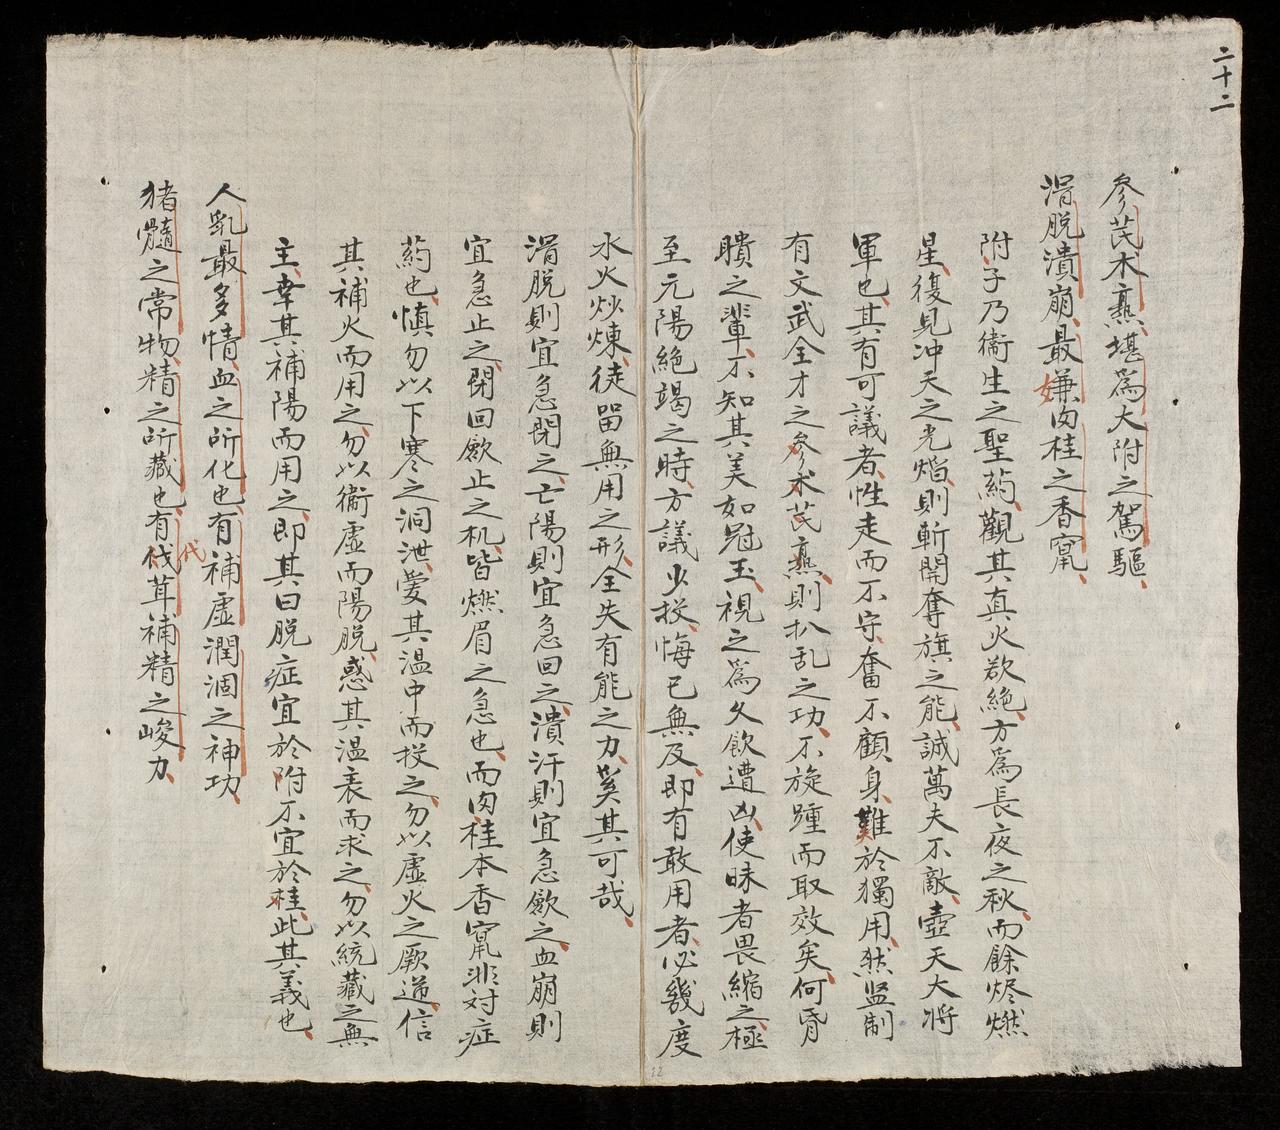 二十二
参芪术熏、堪為大附之駕驅、
滑脱潰崩、最嫌肉桂之香竄、
嫌
附子乃衛生之聖药、觀其真火欲絶、方為長夜之秋、而餘烬燃
星、復見冲天之光焰、則斬開奪旗之能、誠萬夫不敵、壺天大将
軍也、其有可議者、性走而不守、奮不顧身、難於獨用、然监制
有文武全才之参术芪熏、則扒乱之功、不旋踵而取效矣、何昏
瞶之輩、不知其美如冠玉、視之為久飲遭凶、使昧者畏縮之極
至元陽絶竭之時、方議少投、悔已無及、即有敢用者、必幾度
水火炒煉、徒留無用之形、全失有能之力、奚其可哉、
滑脱則宜急閉之、亡陽則宜急回之、潰汗則宜急歛之、血崩則
宜急止之、閉回歛止之机、皆燃眉之急也、而肉桂本香竄、非対症
药也、慎勿以下寒之洞泄、愛其温中而投之、勿以虚火之厥逆、信
其補火而用之、勿以衛虚而陽脱、惑其温表而求之、勿以統藏之無
主、幸其補陽而用之、即其曰脱症宜於附不宜於桂、此其義也、
人乳最多情、血之所化也、有補虚潤涸之神功、
代
猪髓之常物、精之所藏也、有伐茸補精之峻力、
22